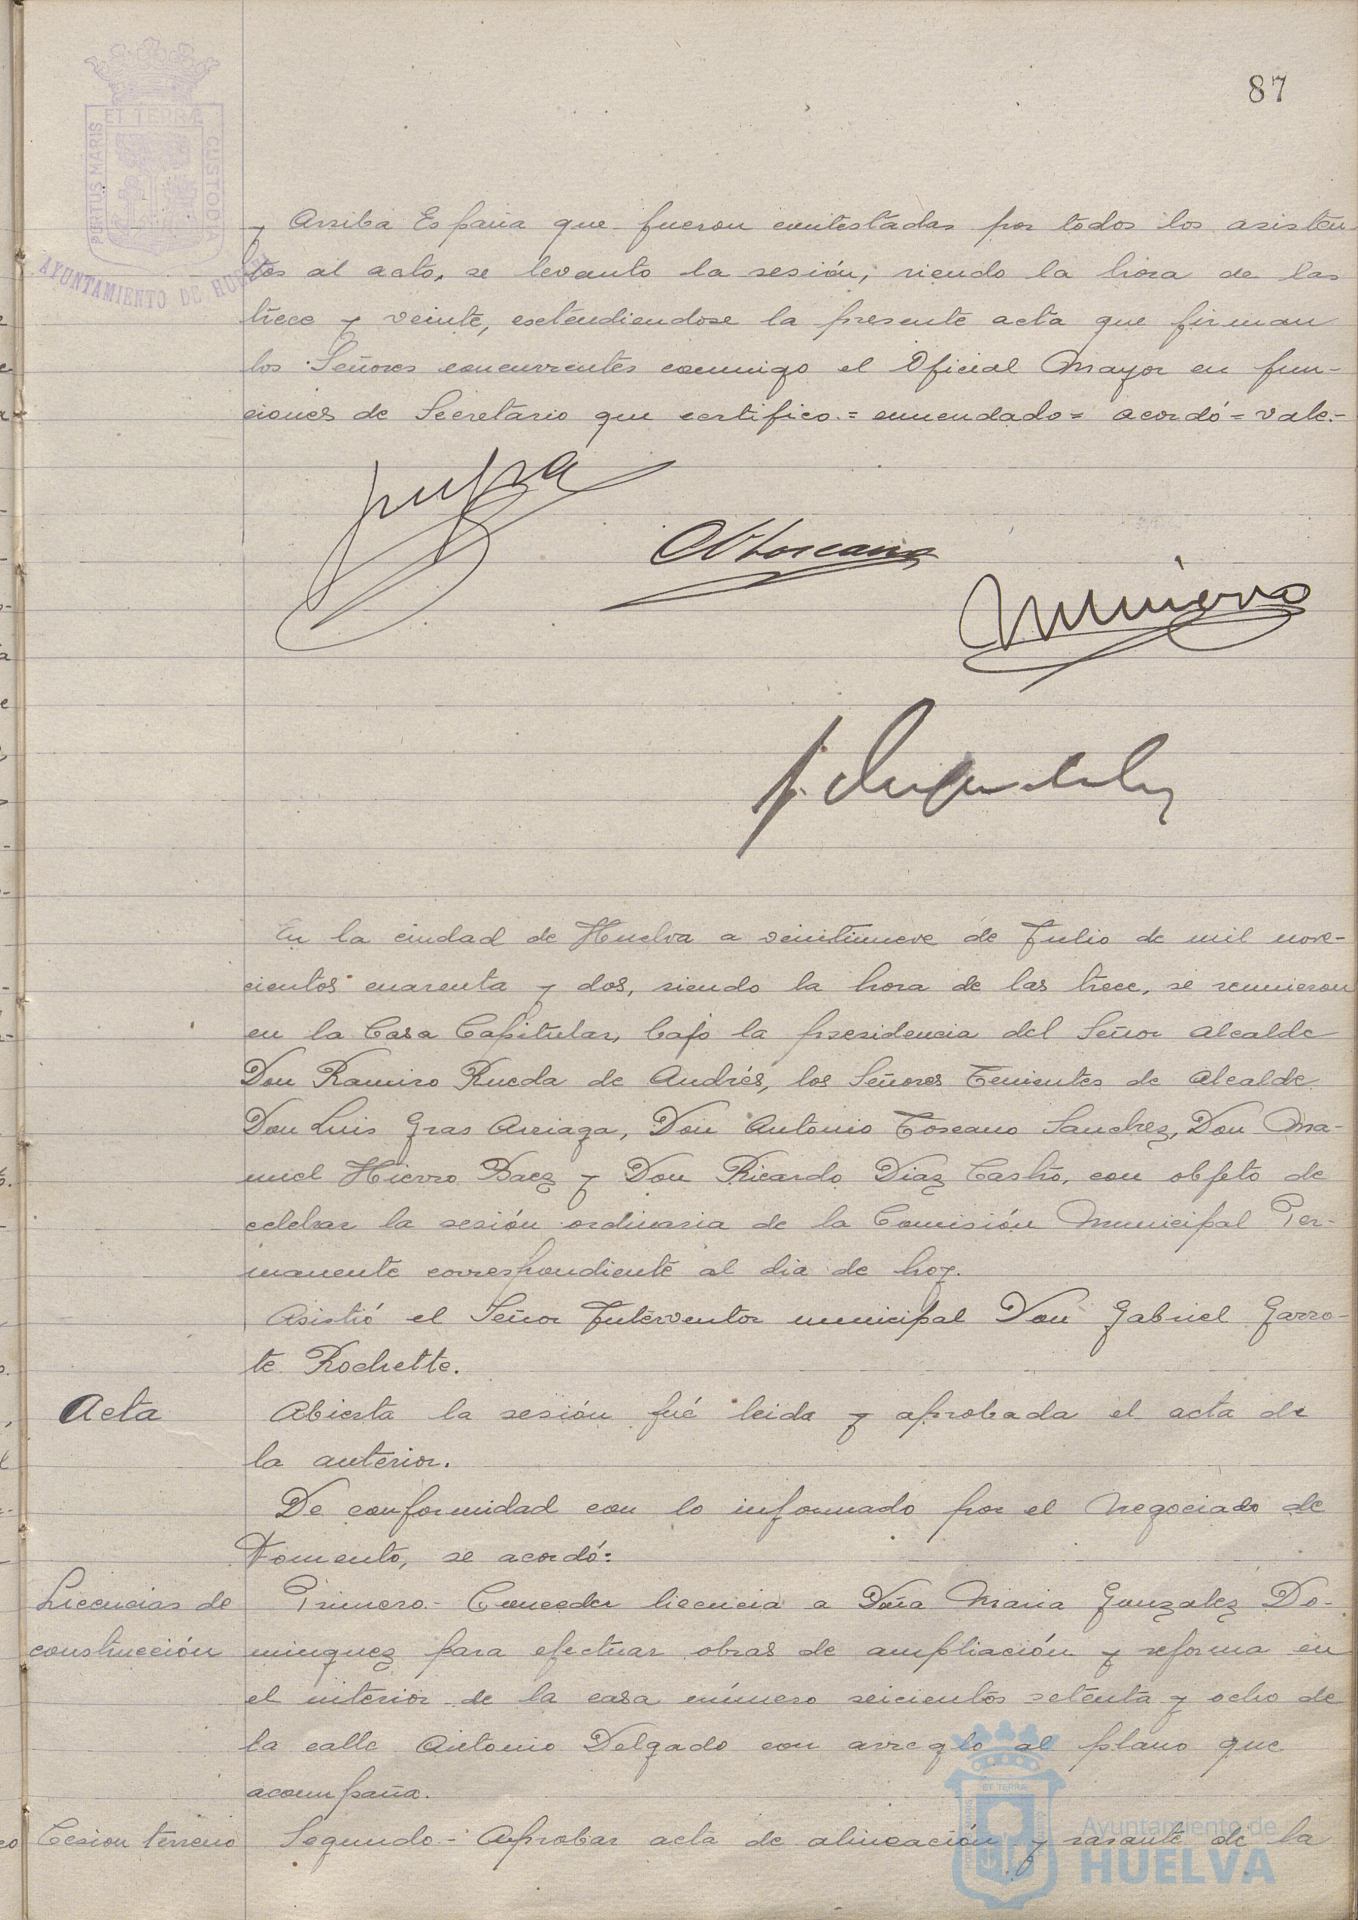 87
ET TERRÆ
PORTUS MARIS
CUSTODIA
AYUNTAMIENTO DE HUELVA
y Arriba España que fueron contestadas por todos los asisten
tes al acto, se levanto la sesión, siendo la hora de las
trece y veinte, extendiendose la presente acta que firman
los Señores concurrentes conmigo el Oficial Mayor en fun-
ciones de Secretario que certifico.= enmendado= acordó= vale.-
A Toscano
En la ciudad de Huelva a veintinueve de Julio de mil nove-
cientos cuarenta y dos, siendo la hora de las trece, se reunieron
en la Casa Capitular, bajo la presidencia del Señor Alcalde
Don Ramiro Rueda de Andrés, los Señores Tenientes de Alcalde
Don Luis Gras Arciaga, Don Antonio Toscano Sanchez, Don Ma-
nuel Hierro Baez y Don Ricardo Diaz Castro, con objeto de
celebrar la sesión ordinaria de la Comisión Municipal Per-
manente correspondiente al dia de hoy.
Asistió el Señor Interventor municipal Don Gabriel Garro-
te Rochette.
Acta
Abierta la sesión fué leida y aprobada el acta de
la anterior.
De conformidad con lo informado por el Negociado de
Fomento, se acordó:
Licencias de
construcción
Primero.- Conceder licencia a Doña Maria Gonzalez Do-
minguez para efectuar obras de ampliación y reforma en
el interior de la casa número seicientos setenta y ocho de
la calle Antonio Delgado con arreglo al plano que
acompaña.
Cesion terreno
Segundo.- Aprobar acta de alineación y rasante de la
Ayuntamiento de
HUELVA